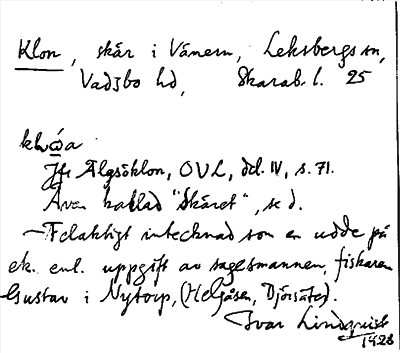 Klon, skär i Vänern, Leksbergs sn,
Vadsbo hd, Skarab. l. 25
Jfr Älgsöklon, OVL, del. IV, s. 71.
Även kallad "Skäret", se d.
— Felaktigt intecknad som en udde på
ek. enl. uppgift av sagesmannen, fiskaren
Gustav i Nytorp, (Helgåsen, Djörsäter).
Ivar Lindquist
1928